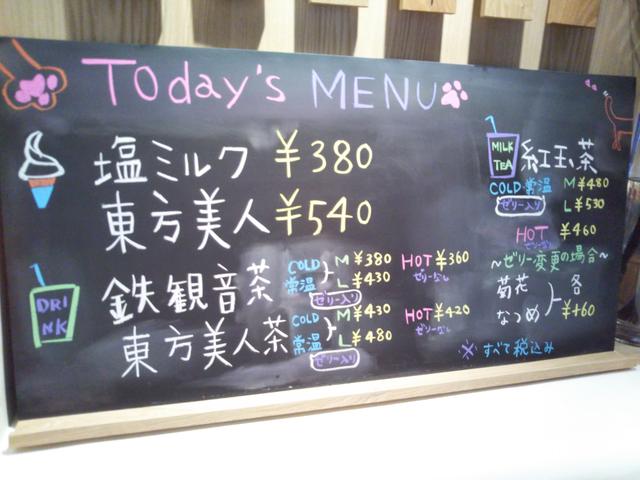 Today's MENU
塩ミルク ¥380
東方美人 ¥540
DRINK
鉄観音茶 COLD 常温 M ¥380 L ¥430 ゼリー入り HOT ¥360 ゼリーなし
東方美人茶 COLD 常温 M ¥430 L ¥480 ゼリー入り HOT ¥420 ゼリーなし
MILK TEA
紅玉茶
COLD・常温 M ¥480
ゼリー入り L ¥530
HOT ¥460
ゼリーなし
〜ゼリー変更の場合〜
菊花 なつめ 各 ¥+60
※すべて税込み